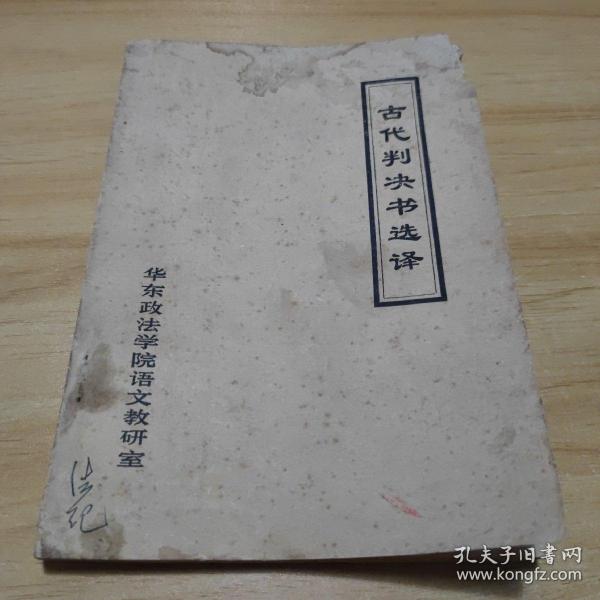 古代判决书选译
华东政法学院语文教研室
孔夫子旧書网
www.kongfz.com